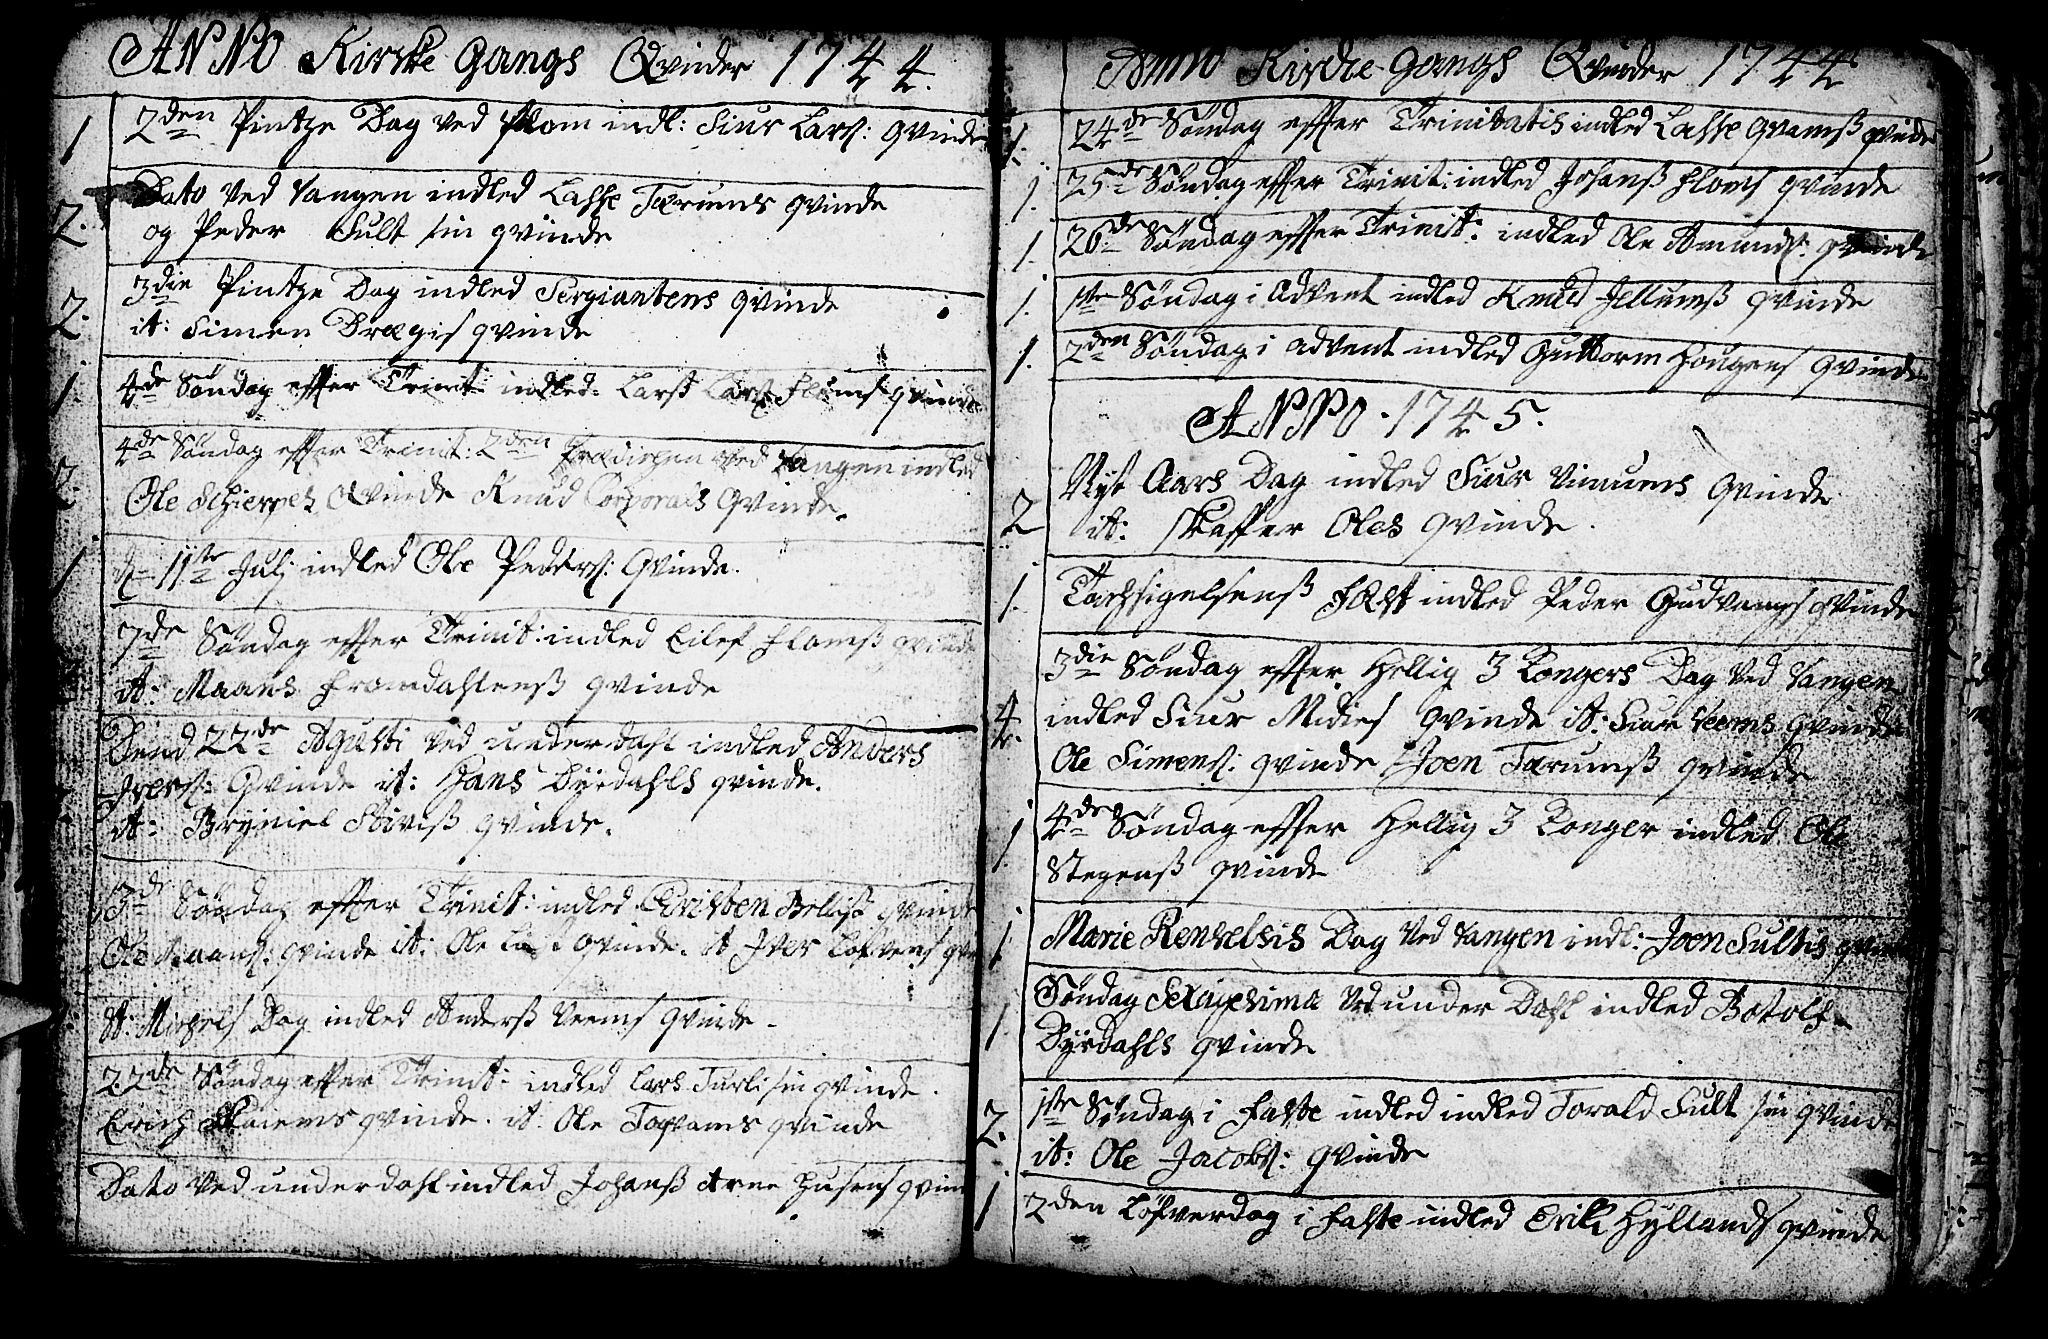 ANNO Kirke Gangs Qvinder 1744.
1 2den Pintze Dag ved Flom indl: Siur Lars: qvinde
2. Dato ved Vangen indled Lasse Tærums qvinde
og Peder Sult sin qvinde
2. 3die Pintze Dag indled Sergiantens qvinde
it: Simen Drægis qvinde
1 4de Søndag effter Trinit: indled: Larss Flams qvinde
2. 4de Søndag effter Trinit: 2den Prædichen ved Vangen indled
Ole Schierpes Qvinde Knud Corporals Qvinde.
1 d. 11te Julj indled Ole Peders: Qvinde.
7de Søndag effter Trinit: indled Eilef Flomss qvinde
it: Maans Fromdahlenss qvinde
Dend 22de Agusti ved underdahl indled Anders
Ivers: Qvinde it: Hans Dyrdahls qvinde.
it: Bryniel qvinde.
13de Søndag effter Trinit: indled Christen Belliss qvinde
Ole Maans: qvinde it: Ole qvinde. it Iver qvi
St: Michels Dag indled Anderss Veems qvinde.
22de Søndag effter Trinit: indled Lars Turli sin qvinde.
Erich Skaiems qvinde. it. Ole Toqvams qvinde
Dato ved underdahl indled Johanss Arne Husens qvin
Anno Kirche Gangs Qvinder 1744
1. 24de Søndag effter Trinitatis indled Lasse Qvamss qvinde
1. 25de Søndag effter Trinit: indled Johanss Floms qvinde
1. 26de Søndag effter Trinit: indled Ole Amunds: qvinde
1. 1ste Søndag i Advent indled Knud Jellumss qvinde
1. 2den Søndag i Advent indled Guttorm Hougens Qvinde
ANNO. 1745.
2 Nyt Aars Dag indled Siur Vinuems Qvinde
it: skaffer Oles qvinde.
1. Tachsigelsenss Fæst indled Peder Gudvangs qvinde
3die Søndag effter Hellig 3 Kongers Dag ved Vangen
4. indled Siur Midies qvinde it: Siur Veems qvinde
Ole Simens: qvinde Joen Tærumss qvinde
1 4de Søndag effter Hellig 3 Konger indled Ole
Stegenss qvinde
1. Marie Renselsis Dag ved Vangen indl: Joen Sultis qvinde
1 Søndag Sexagesima ved under Dahl indled Botolf
Dyrdahls qvinde
2. 1ste Søndag i Faste indled indled Torald Sult sin qvinde
it: Ole Jacobs: qvinde
1 2den Løfverdag i Faste indled Erik Hyllands qvinde